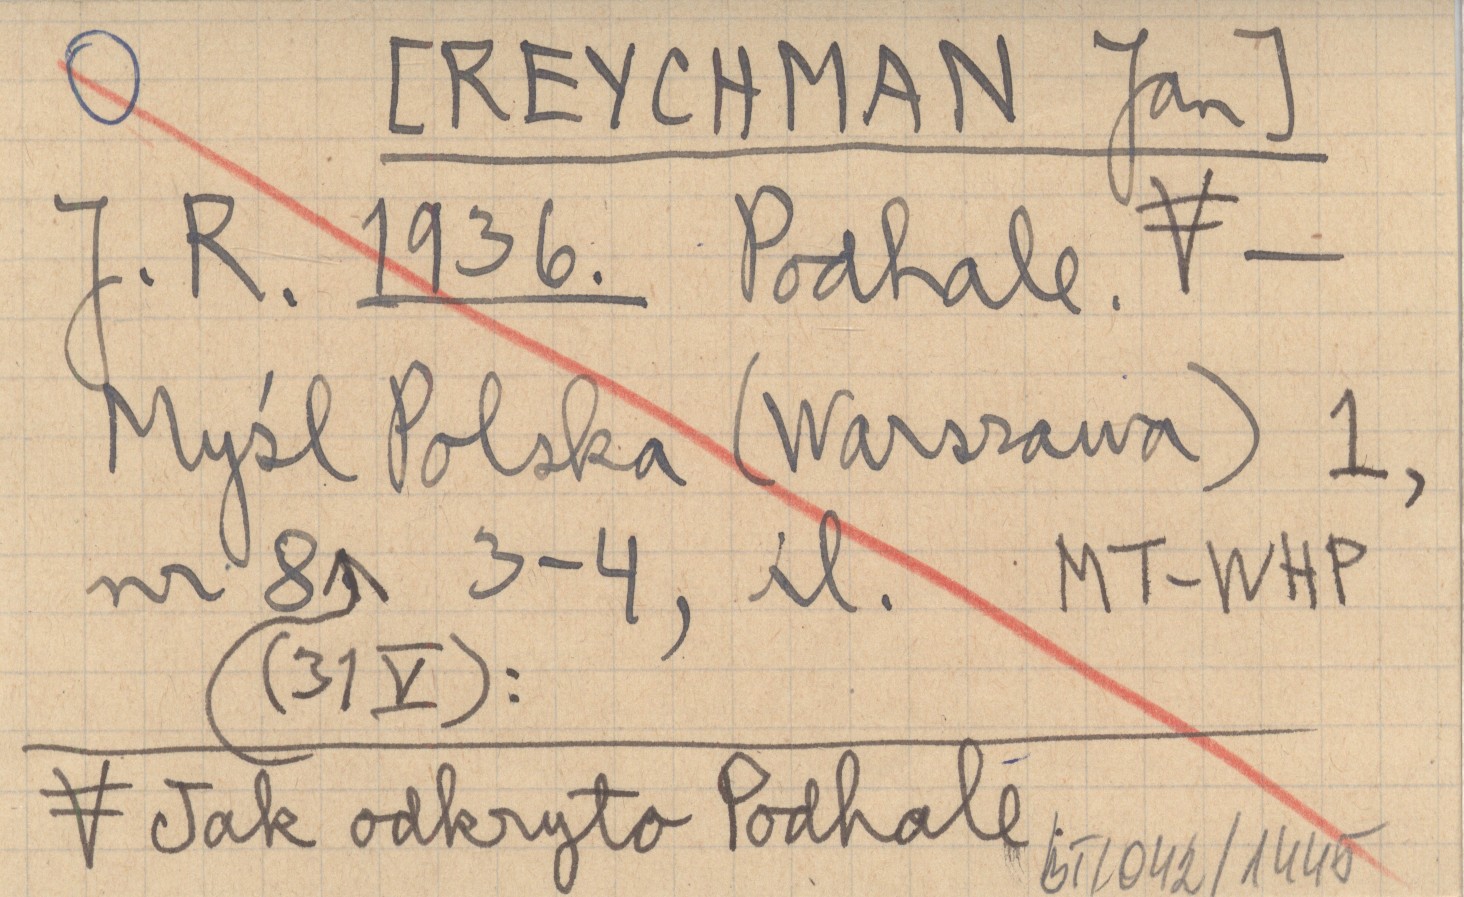 [REYCHMAN Jan]
J. R. 1936. Podhale. —
Myśl Polska (Warszawa) 1,
nr 8 3-4, il. MT-WHP
(31 V):
Jak odkryto Podhale.
BT/042/1445